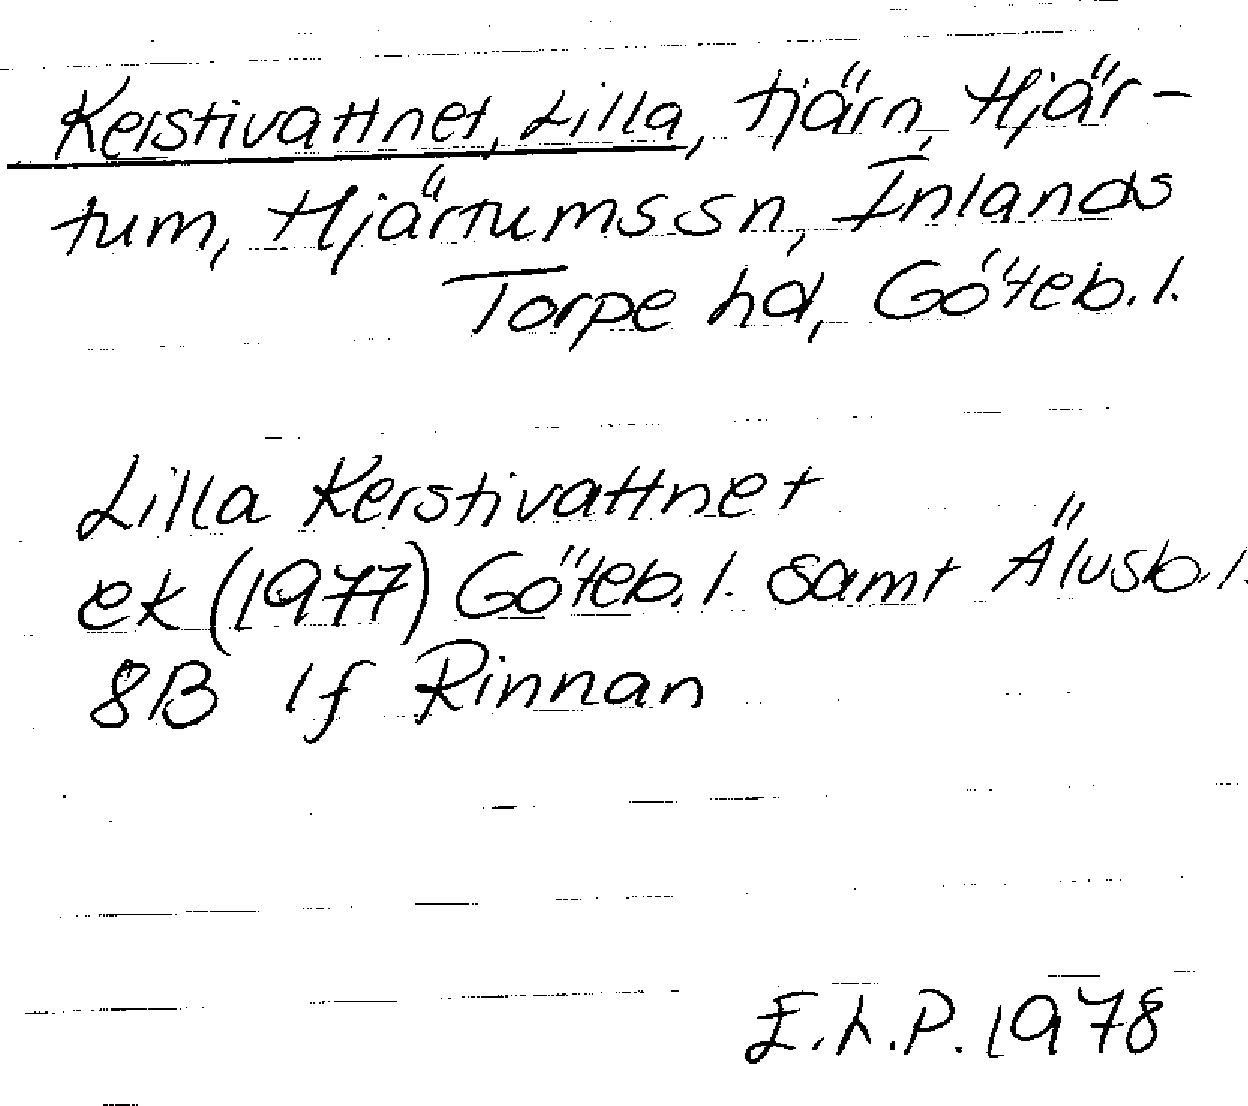 Kerstivattnet, Lilla, tjärn, Hjär-
tum, Hjärtums sn, Inlands
Torpe hd, Göteb. l.
Lilla Kerstivattnet
ek (1977) Göteb. l. samt Älvsb. l.
8B 1f Rinnan
E.L.P. 1978